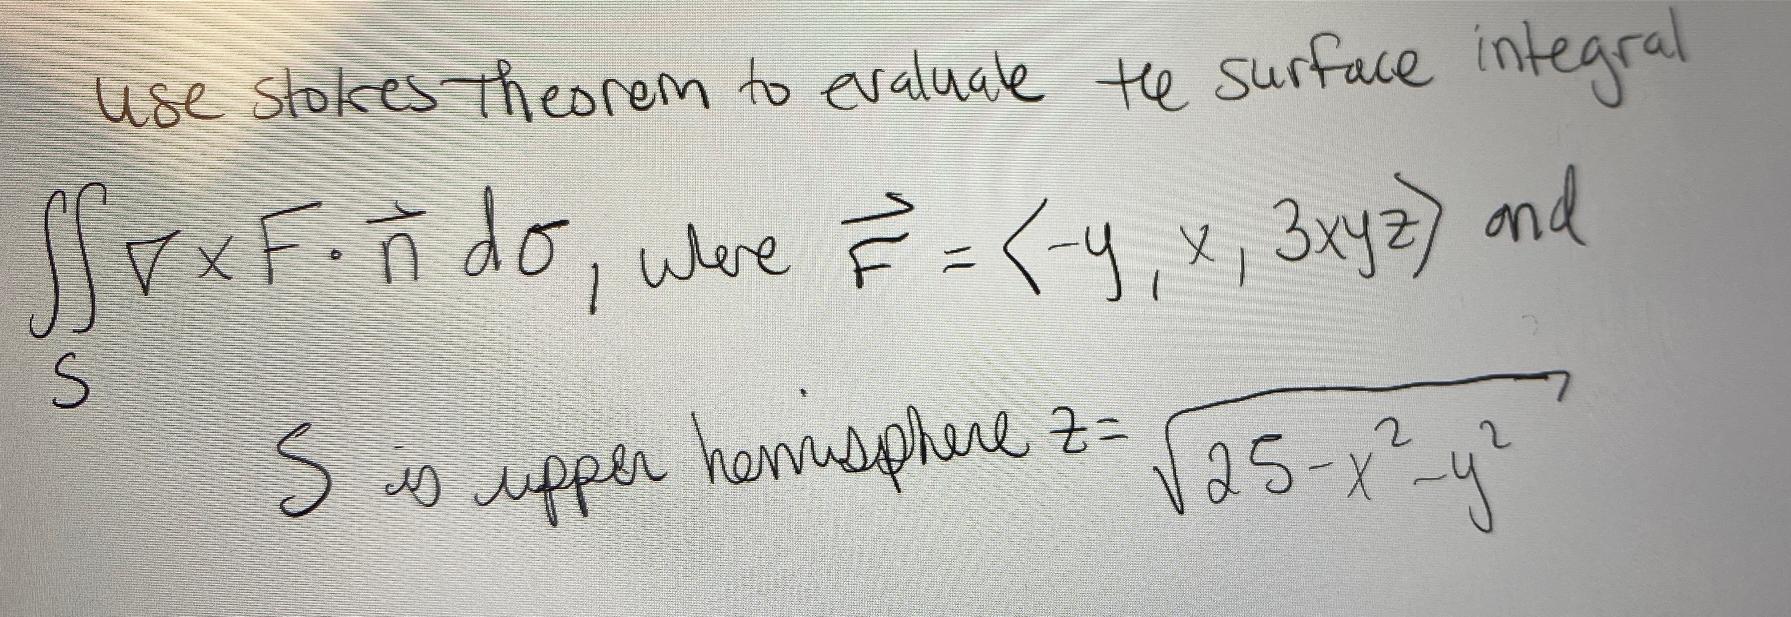 use stokes theorem to evaluate the surface integral
∬ ∇ × F · n⃗ dσ, where F⃗ = ⟨-y, x, 3xyz⟩ and
S
S is upper hemisphere z = √(25-x²-y²)